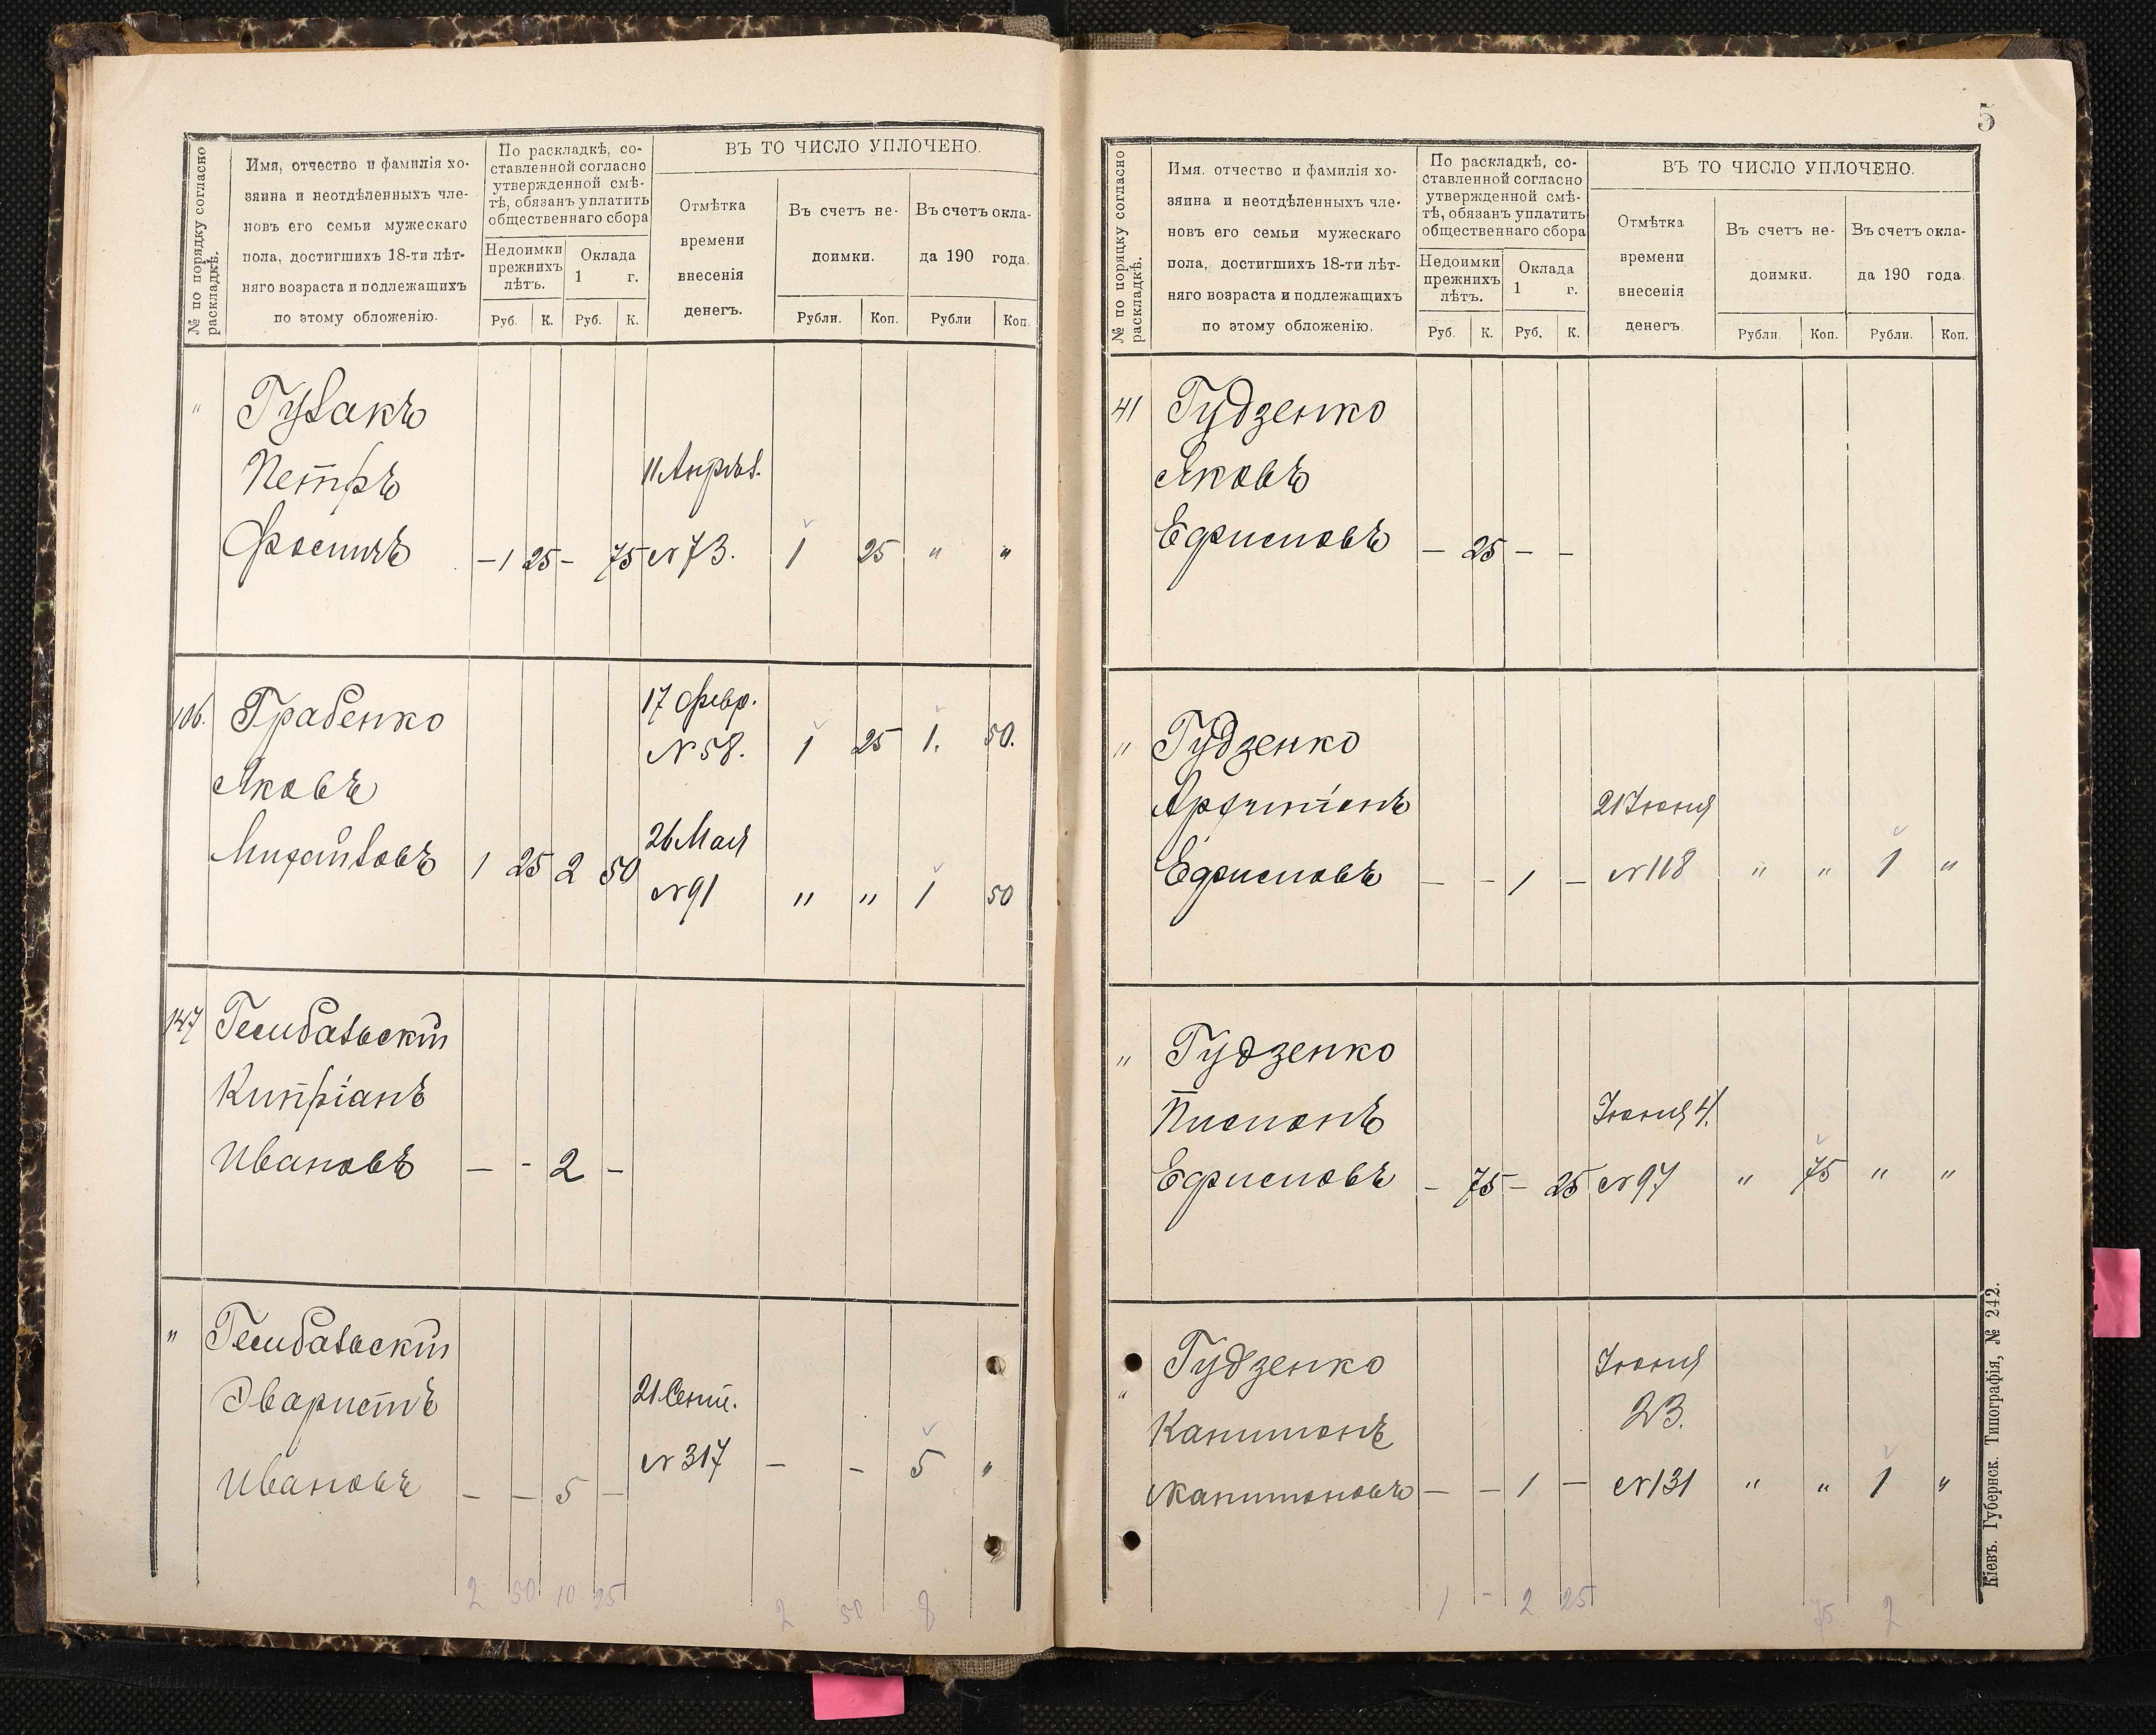 № по порядку согласно
раскладкѣ.
Имя, отчество и фамилія хо-
зяина и неотдѣленныхъ чле-
новъ его семьи мужескаго
пола, достигшихъ 18-ти лѣт-
няго возраста и подлежащихъ
по этому обложенію.
По раскладкѣ, со-
ставленной согласно
утвержденной смѣ-
тѣ, обязанъ уплатить
общественнаго сбора
Недоимки
прежнихъ
лѣтъ.
Оклада
1 г.
Руб. К. Руб. К.
ВЪ ТО ЧИСЛО УПЛОЧЕНО.
Отмѣтка
времени
внесенія
денегъ.
Въ счетъ не-
доимки.
Въ счетъ окла-
да 190 года.
Рубли. Коп. Рубли Коп.
"
Гувакъ
Петръ
11 Апрѣл.
— 1 25 — 75 №73. 1 25 " "
106. Грабенко
17 Февр.
№ 58. 1 25 1. 50.
Яковъ
26 Мая
Михайловъ 1 25 2 50
№91 " " 1 50
147
Кипріанъ
Ивановъ — - 2 —
"
Эваристъ
21 Сент.
№ 317 — — 5 "
Ивановъ — — 5 —
2 50 10 25 2 50 8
5
№ по порядку согласно
раскладкѣ.
Имя. отчество и фамилія хо-
зяина и неотдѣленныхъ чле-
новъ его семьи мужескаго
пола, достигшихъ 18-ти лѣт-
няго возраста и подлежащихъ
по этому обложенію.
По раскладкѣ, со-
ставленной согласно
утвержденной смѣ-
тѣ, обязанъ уплатить
общественнаго сбора
Недоимки
прежнихъ
лѣтъ.
Оклада
1 г.
Руб. К. Руб. К.
ВЪ ТО ЧИСЛО УПЛОЧЕНО.
Отмѣтка
времени
внесенія
денегъ.
Въ счетъ не-
доимки.
Въ счетъ окла-
да 190 года.
Рубли. Коп. Рубли. Коп.
41 Гудзенко
Яковъ
Ефимовъ — 25 — —
" Гудзенко
21 Іюня
Ефимовъ — - 1 — №118 " " 1 "
" Гудзенко
Пимонъ
Іюня 4.
Ефимовъ — 75 — 25 №97 " 75 " "
Гудзенко
Іюня
"
23.
Капитонъ
Капитоновъ — — 1 — №131 " " 1 "
1 - 2 25 75 2
Кіевъ. Губернск. Типографія, № 242.